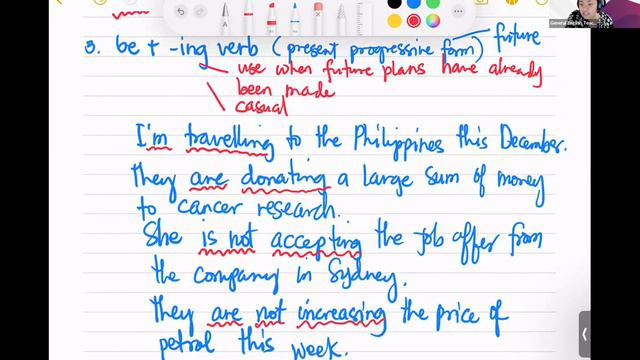 3. be + -ing verb (present progressive form) future
use when future plans have already
been made
casual
I'm travelling to the Philippines this December.
They are donating a large sum of money
to cancer research.
She is not accepting the job offer from
the company in Sydney.
They are not increasing the price of
petrol this week.